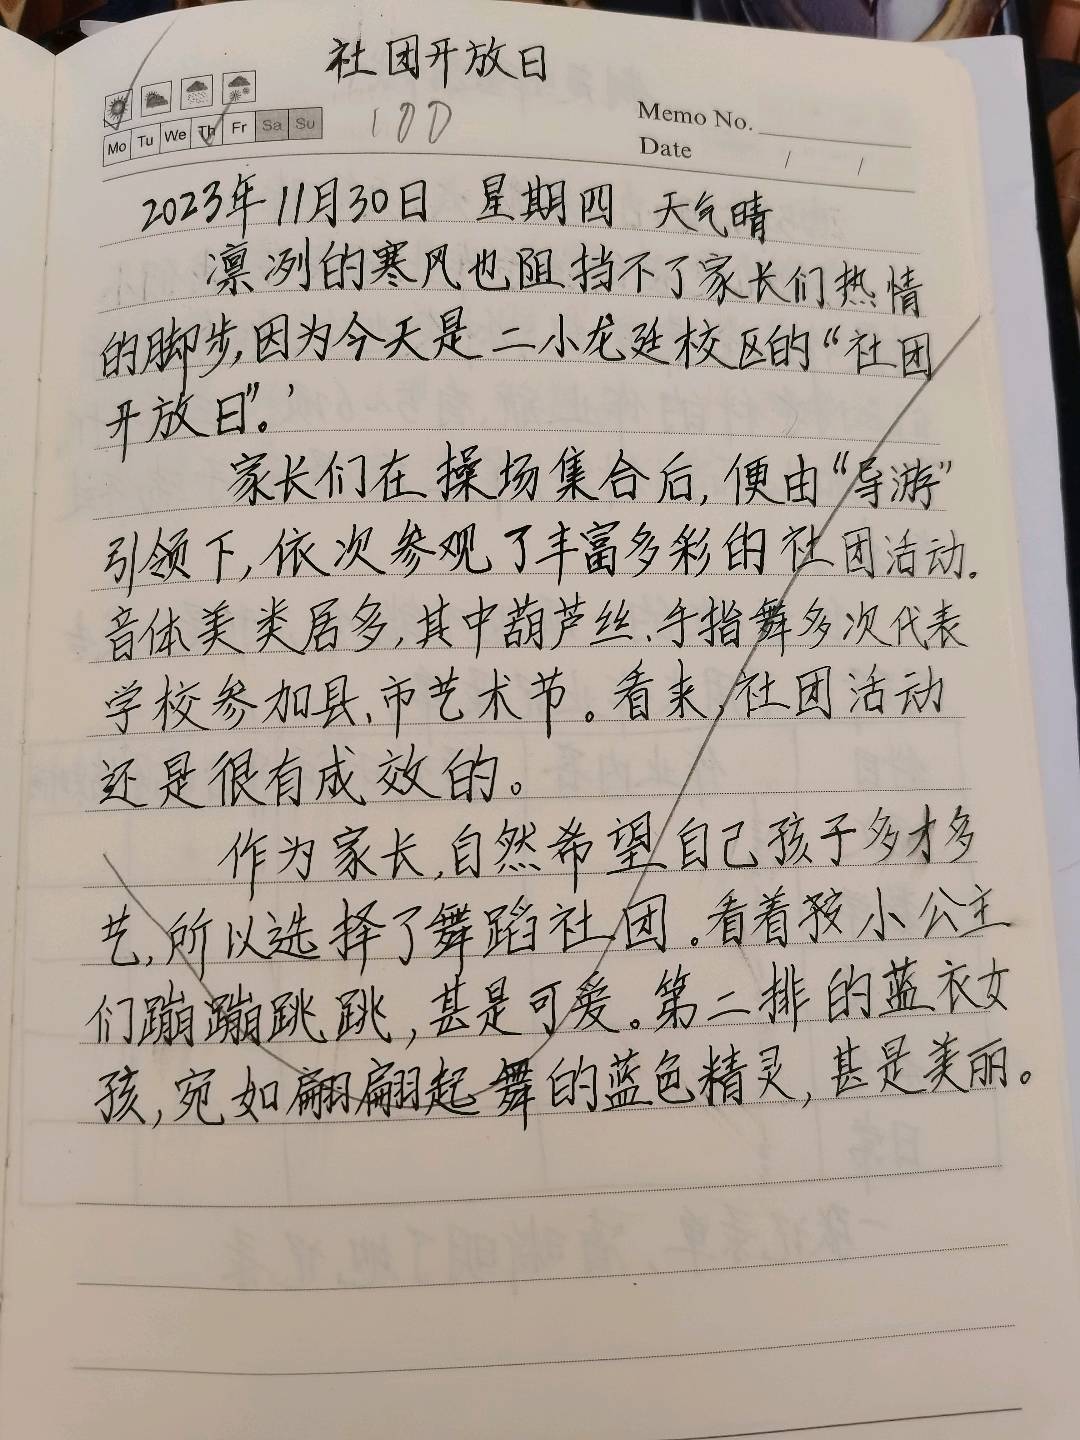 社团开放日
Mo Tu We Th Fr Sa Su
100
Memo No.
Date / /
2023年11月30日 星期四 天气晴
凛冽的寒风也阻挡不了家长们热情
的脚步,因为今天是二小龙廷校区的“社团
开放日”。
家长们在操场集合后,便由“导游”
引领下,依次参观了丰富多彩的社团活动.
音体美类居多,其中葫芦丝、手指舞多次代表
学校参加县、市艺术节。看来,社团活动
还是很有成效的。
作为家长,自然希望自己孩子多才多
艺,所以选择了舞蹈社团。看着小公主
们蹦蹦跳跳,甚是可爱。第二排的蓝衣女
孩,宛如翩翩起舞的蓝色精灵,甚是美丽。